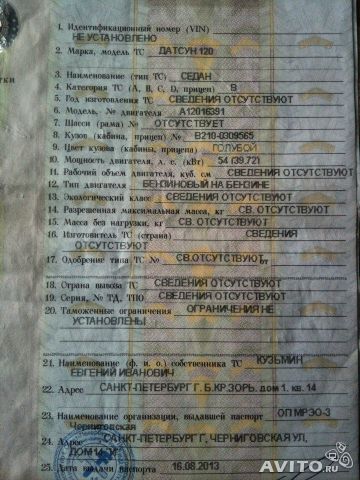 1. Идентификационный номер (VIN)
НЕ УСТАНОВЛЕНО
2. Марка, модель ТС ДАТСУН 120
3. Наименование (тип ТС) СЕДАН
4. Категория ТС (A, B, C, D, прицеп) B
5. Год изготовления ТС СВЕДЕНИЯ ОТСУТСТВУЮТ
6. Модель, № двигателя A12016391
7. Шасси (рама) № ОТСУТСТВУЕТ
8. Кузов (кабина, прицеп) № B210-0309565
9. Цвет кузова (кабины, прицепа) ГОЛУБОЙ
10. Мощность двигателя, л. с. (кВт) 54 (39.72)
11. Рабочий объем двигателя, куб. см СВЕДЕНИЯ ОТСУТСТВУЮТ
12. Тип двигателя БЕНЗИНОВЫЙ НА БЕНЗИНЕ
13. Экологический класс СВЕДЕНИЯ ОТСУТСТВУЮТ
14. Разрешенная максимальная масса, кг СВ. ОТСУТСТВУЮТ
15. Масса без нагрузки, кг СВ. ОТСУТСТВУЮТ
16. Изготовитель ТС (страна) СВЕДЕНИЯ
ОТСУТСТВУЮТ
17. Одобрение типа ТС № СВ.ОТСУТСТВУЮТ от
18. Страна вывоза ТС СВЕДЕНИЯ ОТСУТСТВУЮТ
19. Серия, № ТД, ТПО СВЕДЕНИЯ ОТСУТСТВУЮТ
20. Таможенные ограничения ОГРАНИЧЕНИЯ НЕ
УСТАНОВЛЕНЫ
21. Наименование (ф. и. о.) собственника ТС КУЗЬМИН
ЕВГЕНИЙ ИВАНОВИЧ
22. Адрес САНКТ-ПЕТЕРБУРГ Г. Б.КР.ЗОРЬ, дом 1. кв. 14
23. Наименование организации, выдавшей паспорт ОП МРЭО-3
Черниговская
24. Адрес САНКТ-ПЕТЕРБУРГ Г, ЧЕРНИГОВСКАЯ УЛ,
25. Дата выдачи паспорта 16.08.2013
AVITO.ru